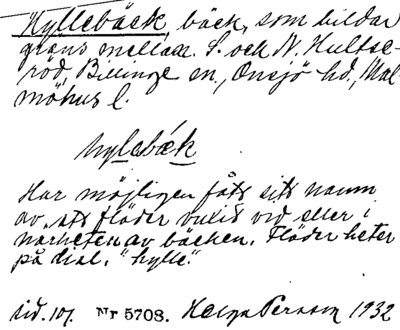 Hyllebäck, bäck, som bildar
gräns mellan S. och N. Hultse-
röd, Billinge sn, Onsjö hd, Mal-
möhus l.
hylebäk
Har möjligen fått sitt namn
av att fläder vuxit vid eller i
närheten av bäcken. Fläder heter
på dial. "hylle".
sid. 107. Nr 5708. Helga Persson 1932